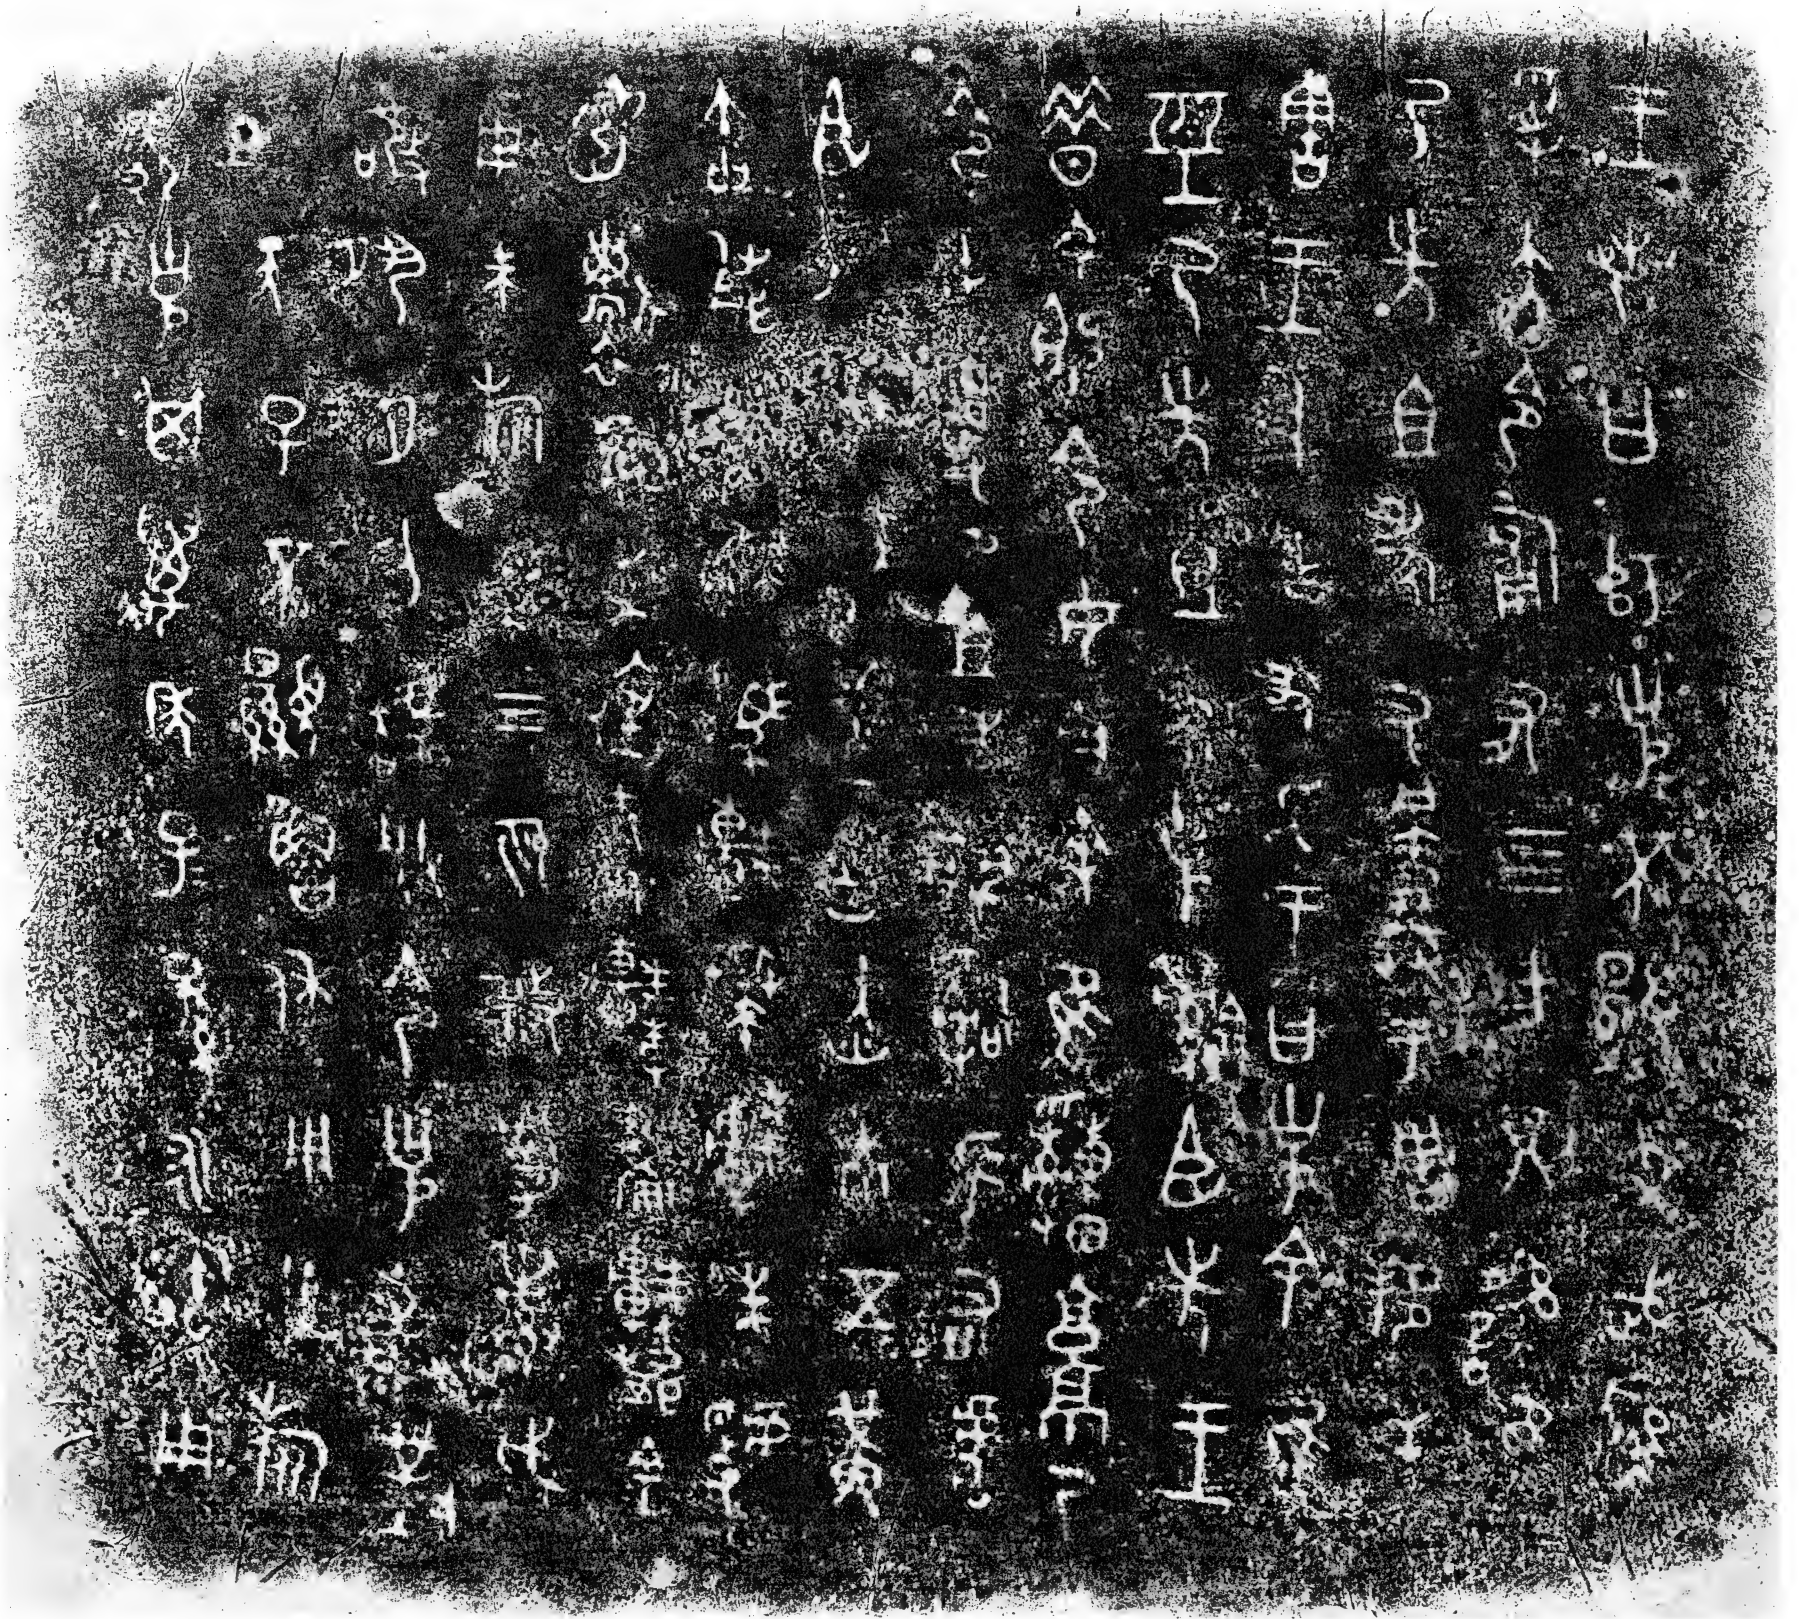 王若曰師克丕顯文武膺
受大令匍有四方則繇隹
乃先且考又爵于周邦干
吾王身乍爪牙王曰克余隹
巠乃先且考克𤔲臣先王
昔余既令女今余隹𤕌𤔰乃
令令女更乃且考𤔲左右虎臣
易女秬鬯一卣赤市五黃
赤舄牙僰駒車𠦪較朱
虢㡇靳虎冟熏里畫𨍰畫𨌰金
甬朱旂馬四匹攸勒素戉
敬夙夕勿灋朕令克敢對揚
天子丕顯魯休用乍旅
盨克其萬年子子孫孫永寶用